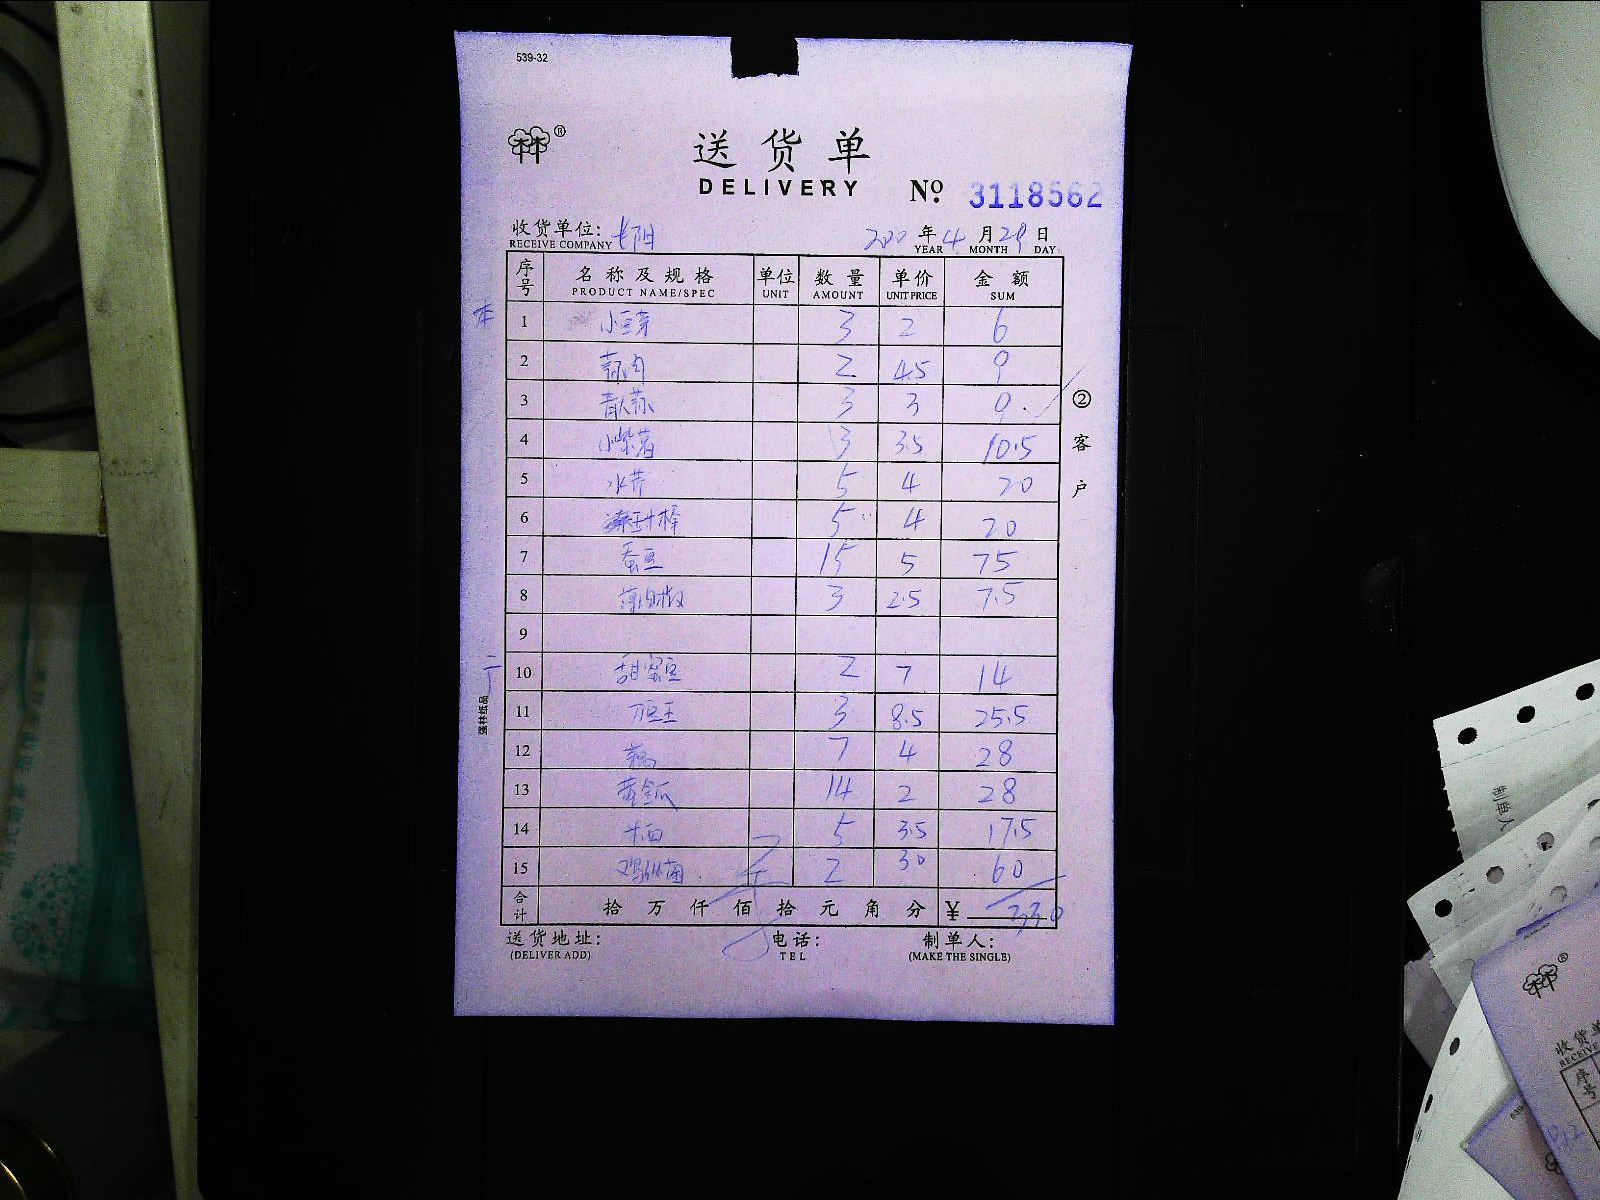 539-32
®
送货单
DELIVERY
No. 3118562
收货单位: 长阳 2020年4月29日
RECEIVE COMPANY YEAR MONTH DAY
序号 名称及规格 单位 数量 单价 金额
PRODUCT NAME/SPEC UNIT AMOUNT UNIT PRICE SUM
本 1 小豆芽 3 2 6
2 蒜肉 2 4.5 9
3 青大蒜 3 3 9.
4 小紫薯 3 3.5 10.5
5 水芹 5 4 20
6 5 4 20
7 蚕豆 15 5 75
8 薄肉椒 3 2.5 7.5
9
10 甜蜜豆 2 7 14
11 刀豆王 3 8.5 25.5
12 7 4 28
13 黄金瓜 14 2 28
14 5 3.5 17.5
15 鸡枞菌 2 30 60
合计 拾万仟佰拾元角分 ¥ 330
送货地址: 电话: 制单人:
(DELIVER ADD) TEL (MAKE THE SINGLE)
②客户
强林纸品
制单人
®
收货单
RECEIVE
序号